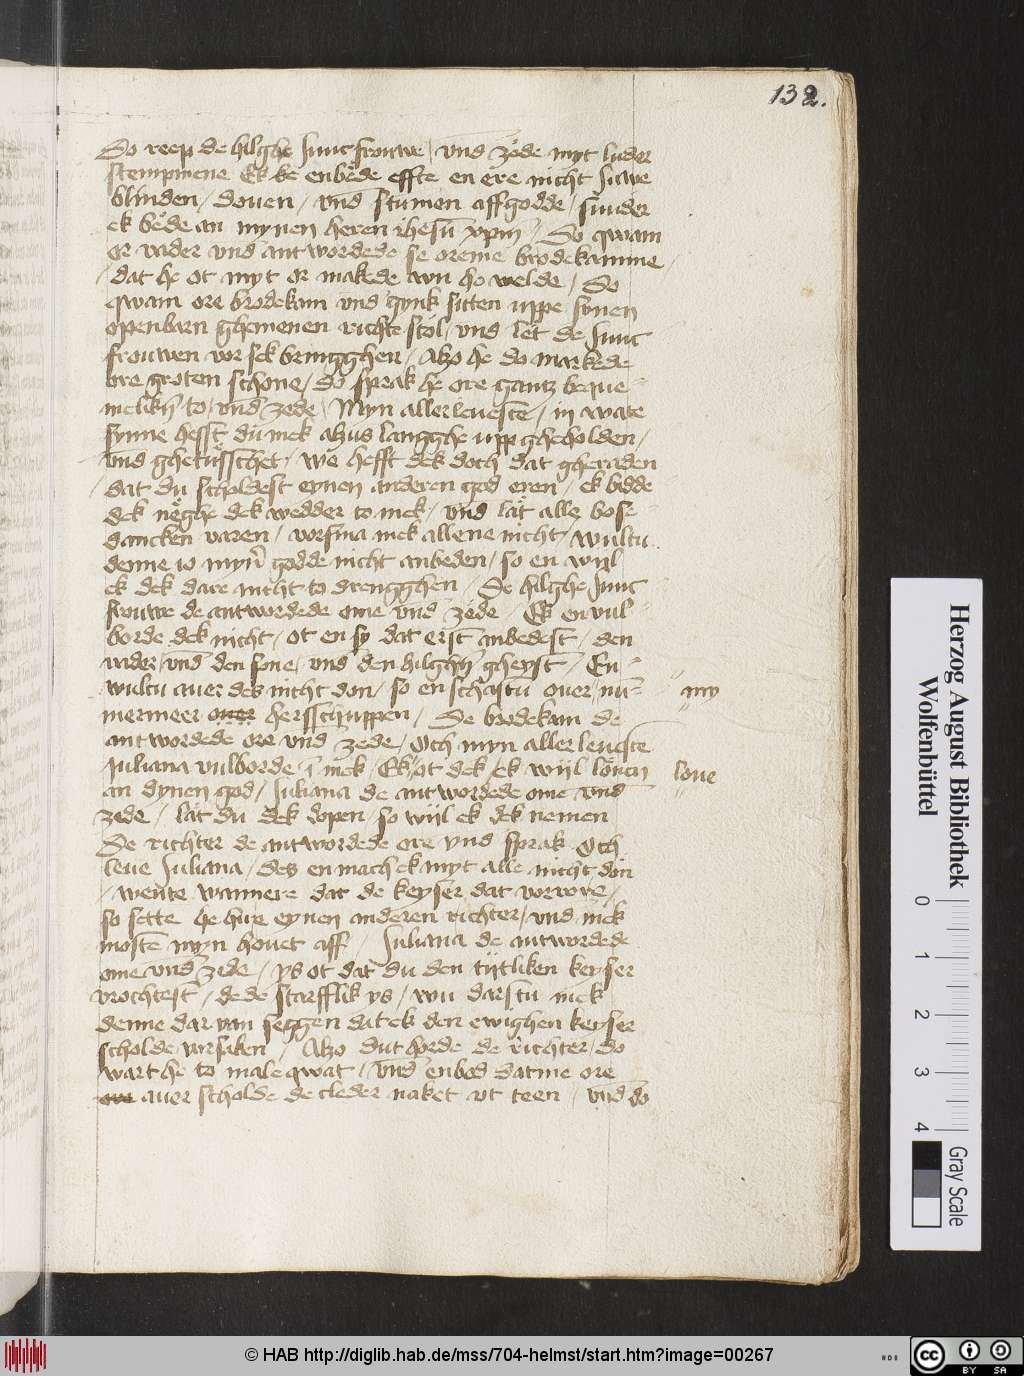 132.
So reep de hilghe Juncfrouwe / vnd zede myt luder
stempmene Ek be enbede effte en ere nicht Juwe
blinden / douen / vnd stumen affgodde / sunder
ek bede an mynen heren ihesu xpm / So qwam
or vader vnd antwordede se oreme brodekamme /
/ dat he ot myt or makede wu ho welde / So
qwam ore brodekam vnd gynk sitten uppe synen
openbarn ghemenen richte stol / vnd let de Junc
frouwen vor sek bringghen / Alzo he do markede
ore groten schone / do sprak he ore gantz beque-
melikn to / vnd zede / Myn allerleueste / in wate
synne hefft du mek alzus langghe upp gheholden /
vnd ghetusschet / we hefft dek doch dat gheraden
/ dat du scholdest eynen anderen god eren / ek bidde
dek neghe dek wedder to mek / vnd lat alle bose
dancken varen / vorsma mek allene nicht / wultu
denne io myn godde nicht anbeden / so en wyl
ek dek dare nicht to drengghen / De hilghe Junc
frouwe de antwordede ome vnd zede / Ek en vul-
borde dek nicht / ot en sy dat erst anbedest / den
vader / vnd den sone / vnd den hilghn gheyst / En
wultu auer des nicht don / so en schastu ouer num- my
mermeer ouer hersschuppen / De brodekam de
antwordede ore vnd zede / Och myn allerleueste
Juliana vulborde i mek / Ek ot dek / ek wyl louen loue
an dynen god / Juliana de antwordede ome vnd
zede / lat du dek dopen / so wyl ek dek nemen
De richter de antwordede ore vnd sprak Och
leue Juliana / des en mach ek myt alle nicht don
/ wente wannere dat de keyser dat vorvore /
so sette he hire eynen anderen richter / vnd mek
moste myn houet aff / Juliana de antwordede
ome vnd zede / ys ot dat du den tytliken keyser
vrochtest / de de starfflik ys / wu darstu mek
denne dar van seggen dat ek den ewighen keyser
scholde vorsaken / Alzo dut horde de richter / do
wart he to male qwat / vnd enbod datme ore
ore auer scholde de cleder naket vt teen / vnd do
Herzog August Bibliothek
Wolfenbüttel
0 1 2 3 4
Gray Scale
© HAB http://diglib.hab.de/mss/704-helmst/start.htm?image=00267
cc BY SA